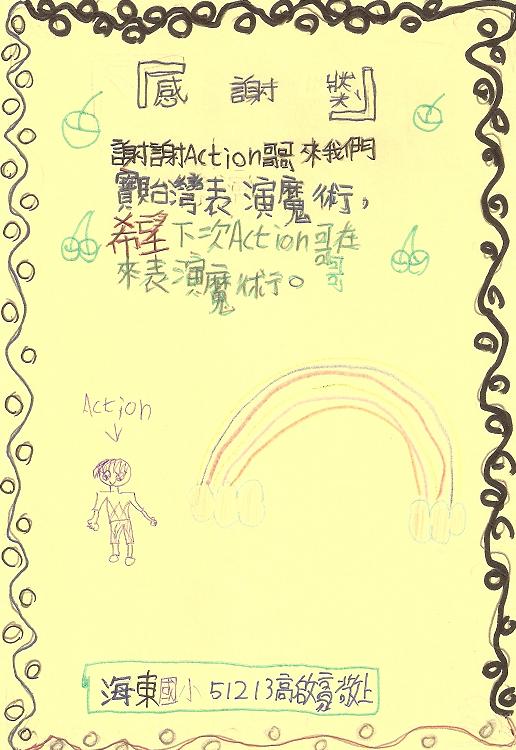 『感謝狀』
謝謝Action哥哥來我們
寶貽灣表演魔術，
希望下次Action哥哥在
來表演魔術。
Action
海東國小 51213高啟富敬上